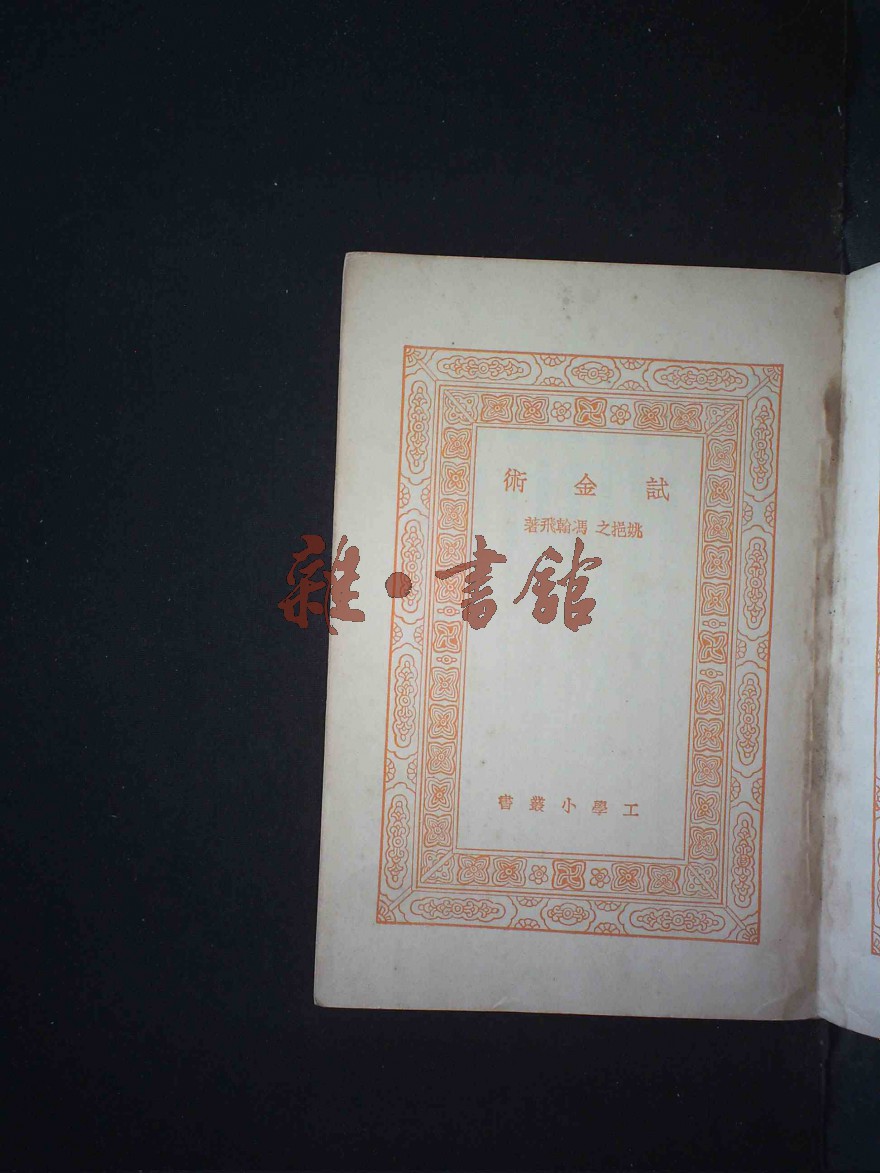 試金術
姚挹之 馮翰飛著
雜·書館
工學小叢書